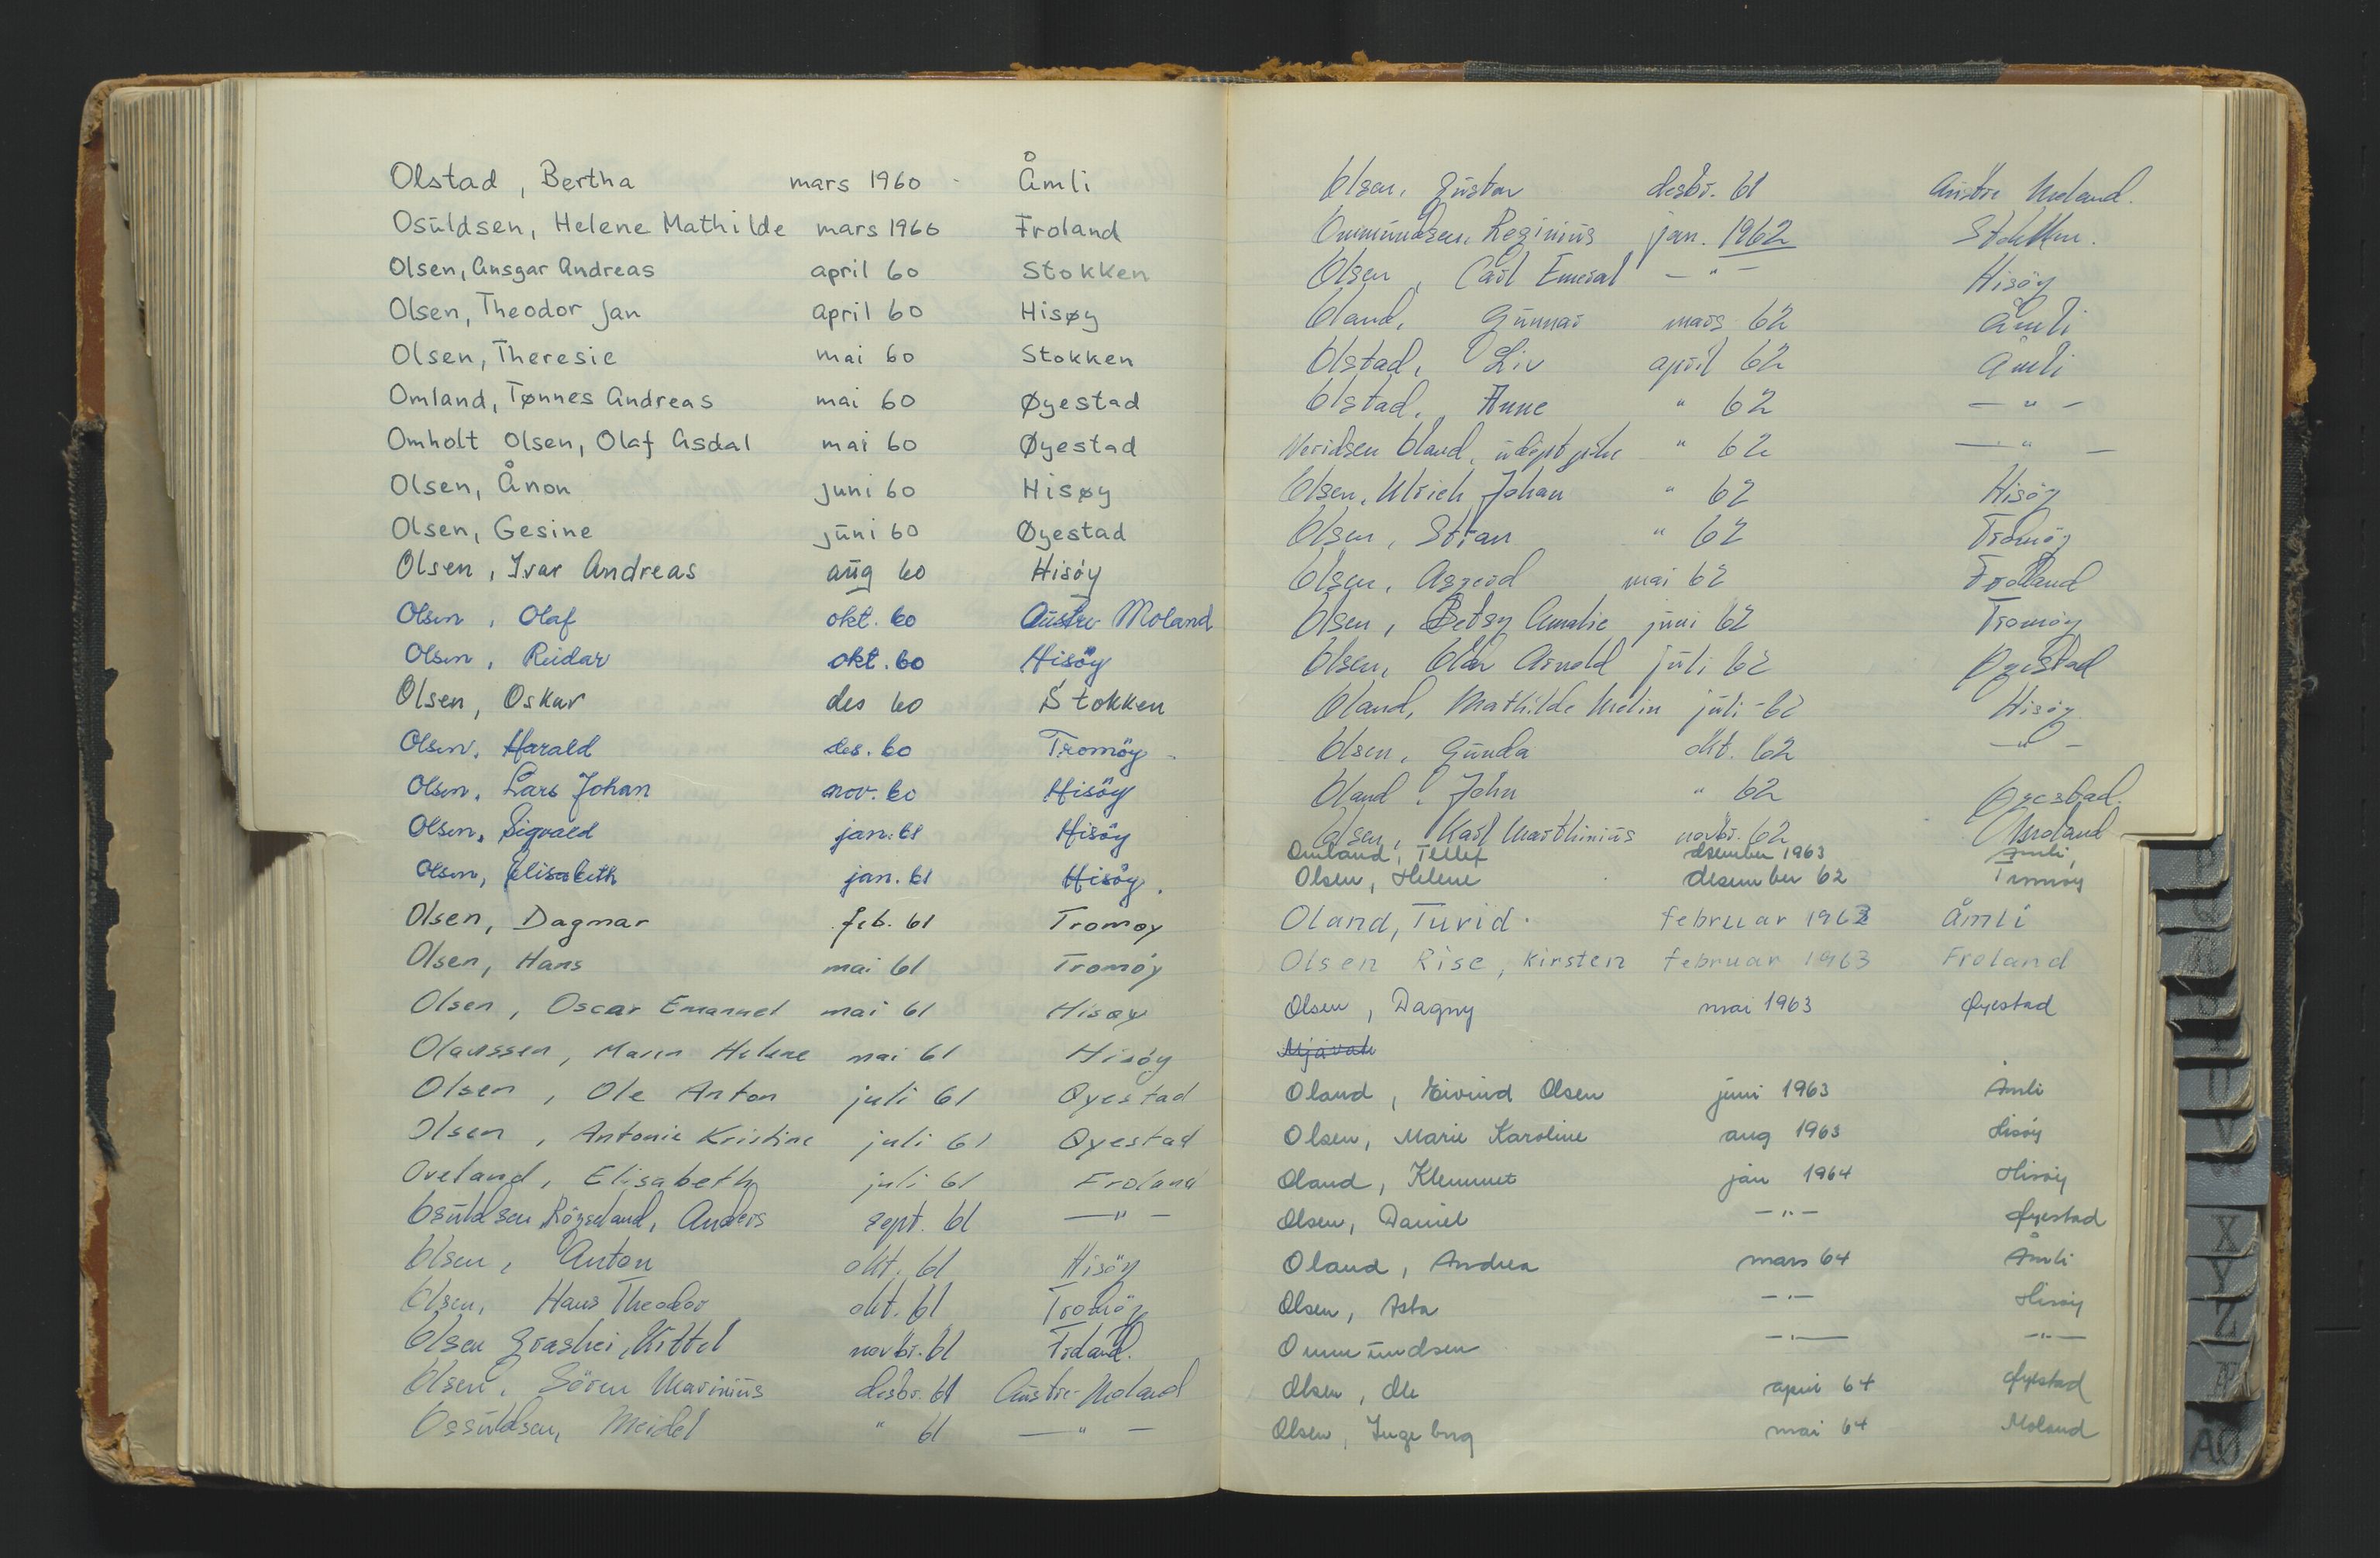 Olstad, Bertha mars 1960 - Åmli
Osuldsen, Helene Mathilde mars 1960 Froland
Olsen, Ansgar Andreas april 60 Stokken
Olsen, Theodor Jan april 60 Hisøy
Olsen, Theresie mai 60 Stokken
Omland, Tønnes Andreas mai 60 Øyestad
Omholt Olsen, Olaf Asdal mai 60 Øyestad
Olsen, Ånon juni 60 Hisøy
Olsen, Gesine juni 60 Øyestad
Olsen, Ivar Andreas aug 60 Hisöy
Olsen, Olaf okt. 60 Austre Moland
Olsen, Reidar okt. 60 Hisöy
Olsen, Oskar des 60 Stokken
Olsen, Harald des. 60 Tromöy -
Olsen, Lars Johan nov. 60 Hisöy
Olsen, Sigvald jan. 61 Hisöy
Olsen, Elisabeth jan. 61 Hisöy.
Olsen, Dagmar feb. 61 Tromøy
Olsen, Hans mai 61 Tromöy
Olsen, Oscar Emanuel mai 61 Hisøy
Olaussen, Maren Helene mai 61 Hisöy
Olsen, Ole Anton juli 61 Øyestad
Olsen, Antonie Kristine juli 61 Øyestad
Oveland, Elisabeth juli 61 Froland
Osuldsen Röyseland, Anders sept. 61 — " —
Olsen, Anton okt. 61 Hisöy
Olsen, Hans Theodor okt. 61 Tromöy
Olsen Grashei, Kittel novbr. 61 Froland.
Olsen, Sören Marinius desbr. 61 Austre Moland
Ossuldsen, Meidel " 61 — " —
Olsen, Gustav desbr. 61 Austre Moland.
Ommundsen, Reginius jan. 1962 Stokken.
Olsen, Carl Emerat — " — Hisöy
Oland, Gunnar mars 62 Åmli
Olstad, Liv april 62 Åmli
Olstad, Anne " 62 — " —
Oland, " 62 — " —
Olsen, Ulrich Johan " 62 Hisöy
Olsen, Stian " 62 Tromöy
Olsen, Asgerd mai 62 Froland
Olsen, Betsy Amalie juni 62 Tromöy
Olsen, Olav Arnold juli 62 Øyestad
Oland, Mathilde Melin juli - 62 Hisöy
Olsen, Gunda okt. 62 — " —
Oland, John " 62 Øyestad.
Olsen, Karl Marthinius novbr. 62 Moland
Omland, Tellef desember 1963 Åmli,
Olsen, Helene desember 62 Tromøy
Oland, Turid. februar 1963 Åmli
Olsen Rise, Kirsten februar 1963 Froland
Olsen, Dagny mai 1963 Øyestad
Oland, Eivind Olsen juni 1963 Åmli
Olsen, Marie Karoline aug 1963 Hisöy
Oland, Klemmet jan 1964 Hisöy
Olsen, Daniel — " — Øyestad
Oland, Andrea mars 64 Åmli
Olsen, Asta — " — Hisöy
Ommundsen — " — — " —
Olsen, Ole april 64 Øyestad
Olsen, Ingeborg mai 64 Moland
U
V
X
Y
Z
Æ
AÅ